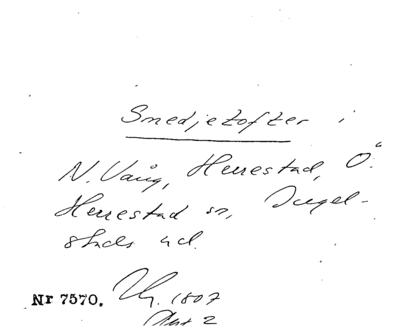 Smedjetofter i
N. Vång, Herrestad, Ö.
Herrestad sn, Ingel-
stads hd.
Nr 7570. 1807
Akt 2